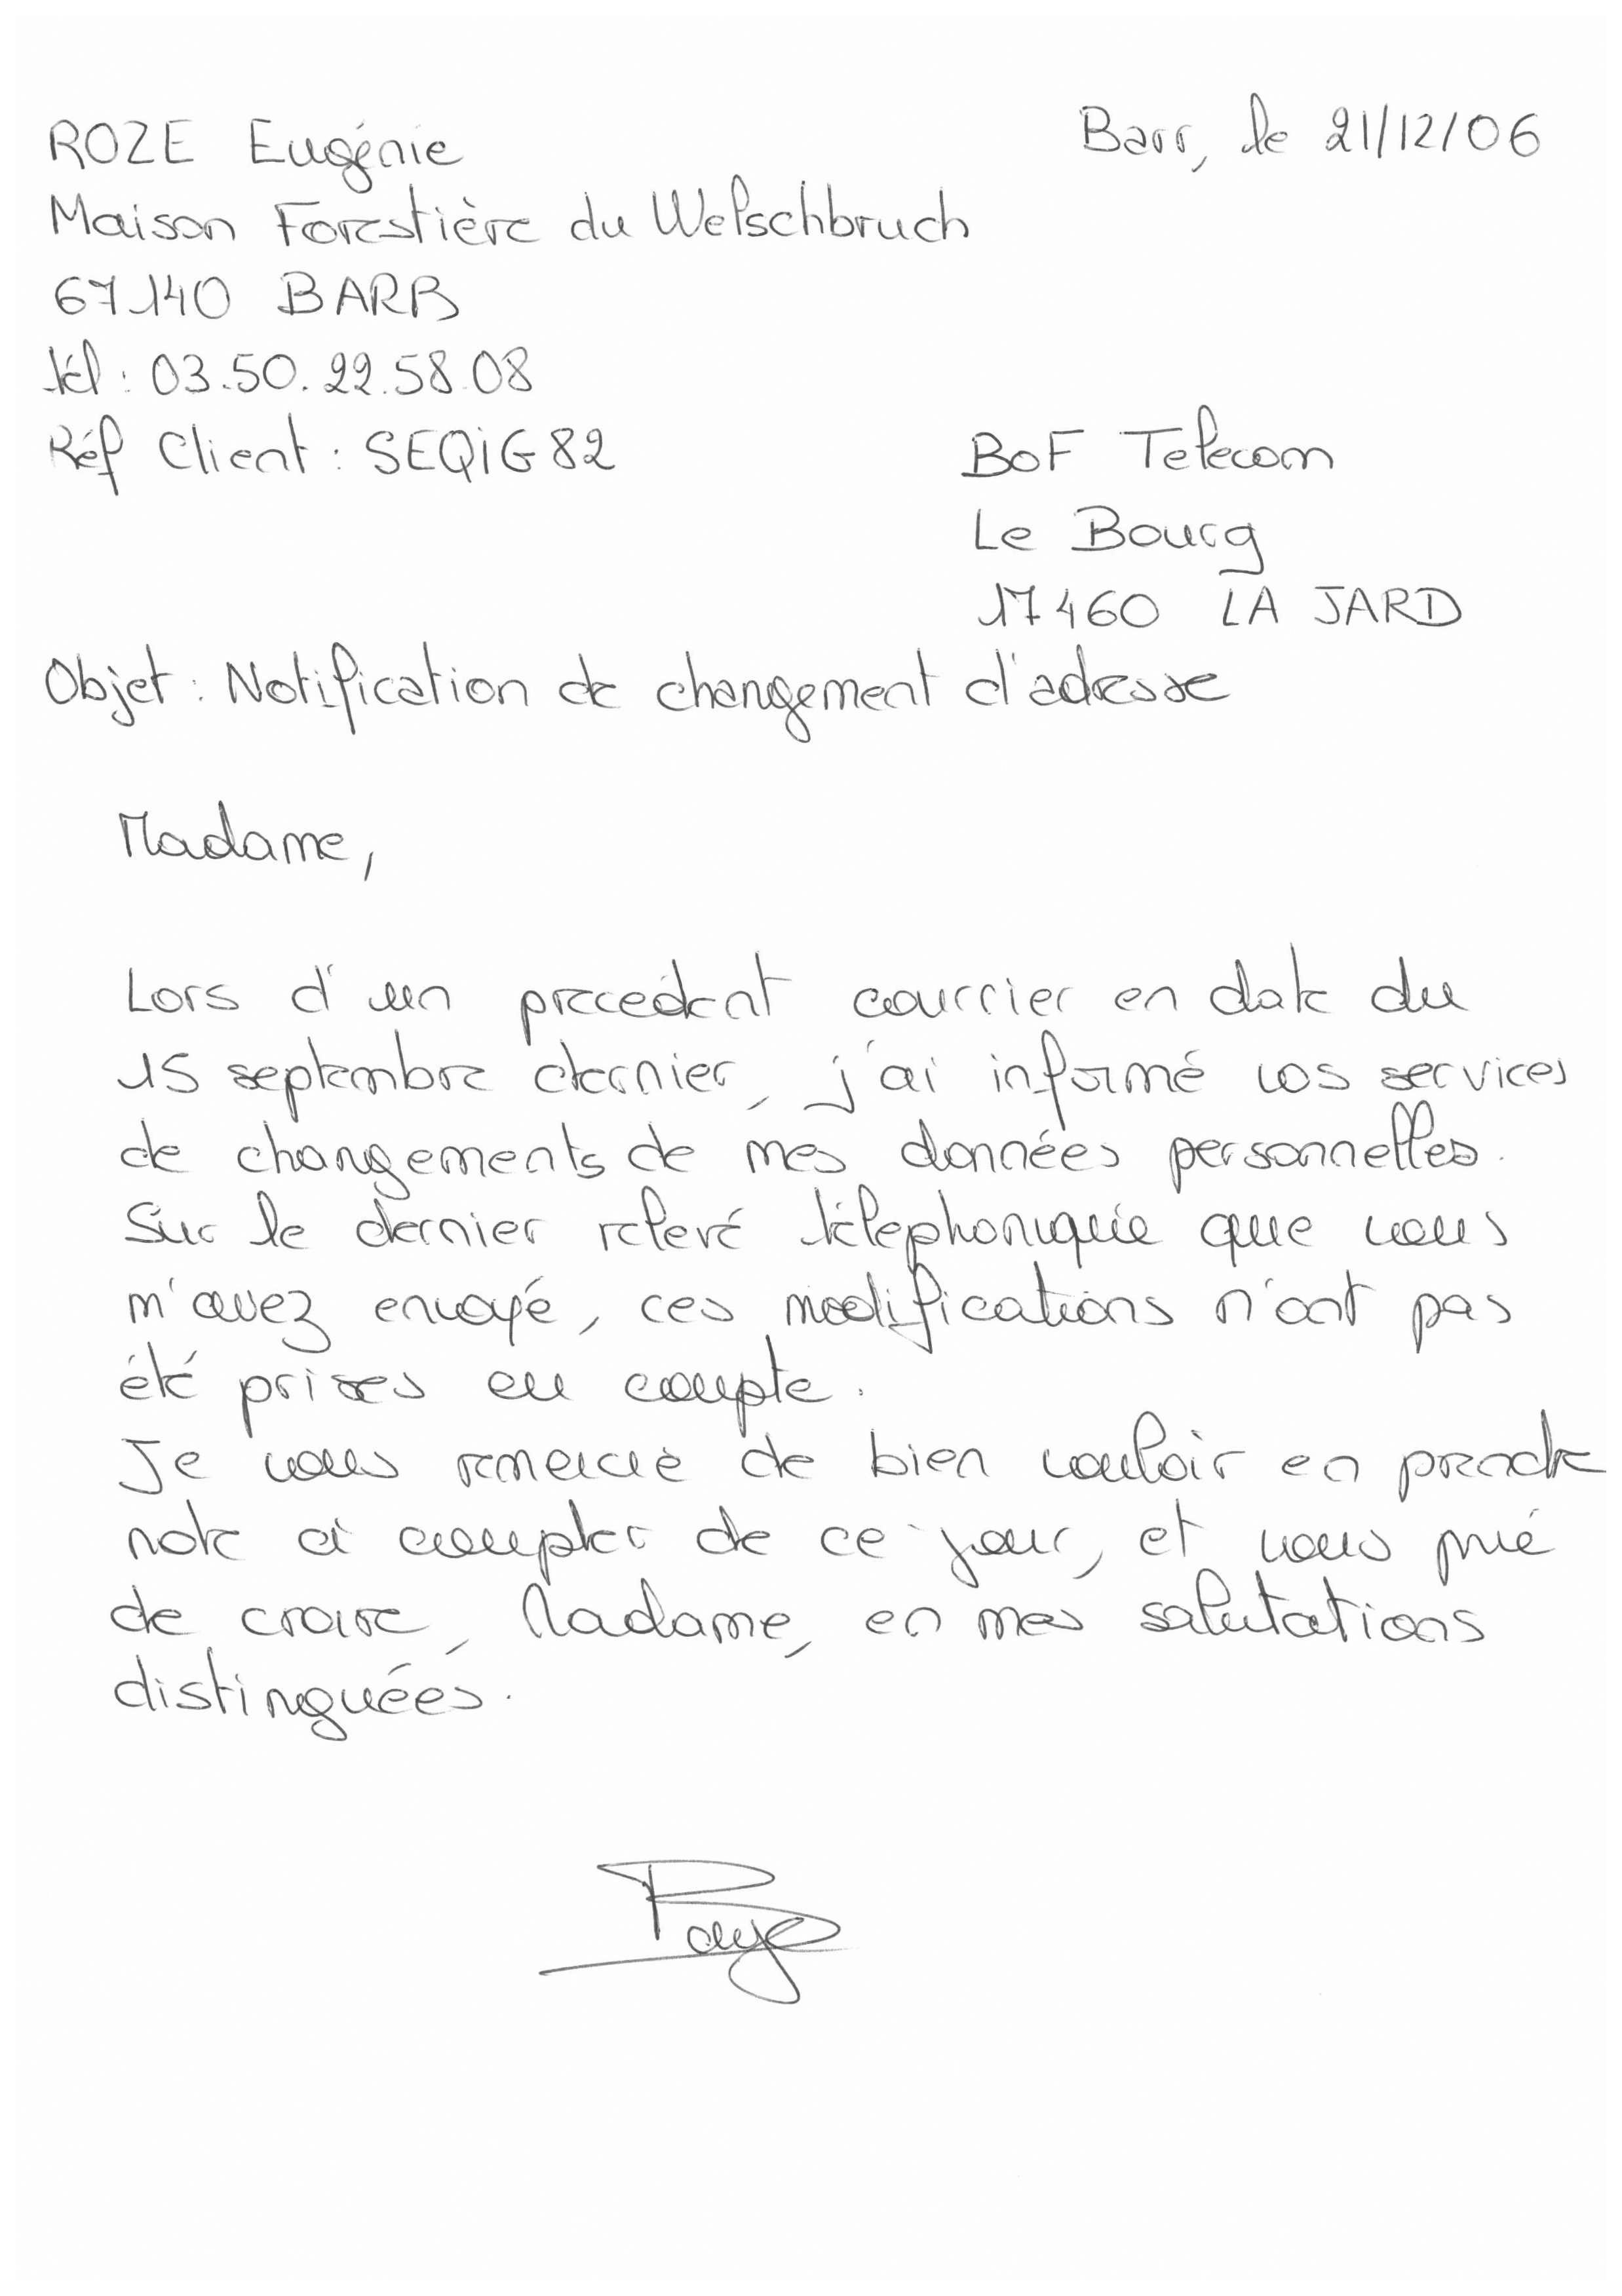 ROZE Eugénie
Barr, le 21/12/06
Maison Forestière du Welschbruch
67140 BARR
tél : 03.50.22.58.08
Réf Client : SEQIG82
BoF Telecom
Le Bourg
17460 LA JARD
Objet : Notification de changement d'adresse
Madame,
Lors d'un precedent courrier en date du
15 septembre dernier, j'ai informé vos services
de changements de mes données personnelles.
Sur le dernier relevé télephonique que vous
m'avez envoyé, ces modifications n'ont pas
été prises en compte.
Je vous remercie de bien vouloir en prendre
note à compter de ce jour, et vous prie
de croire, Madame, en mes salutations
distinguées.